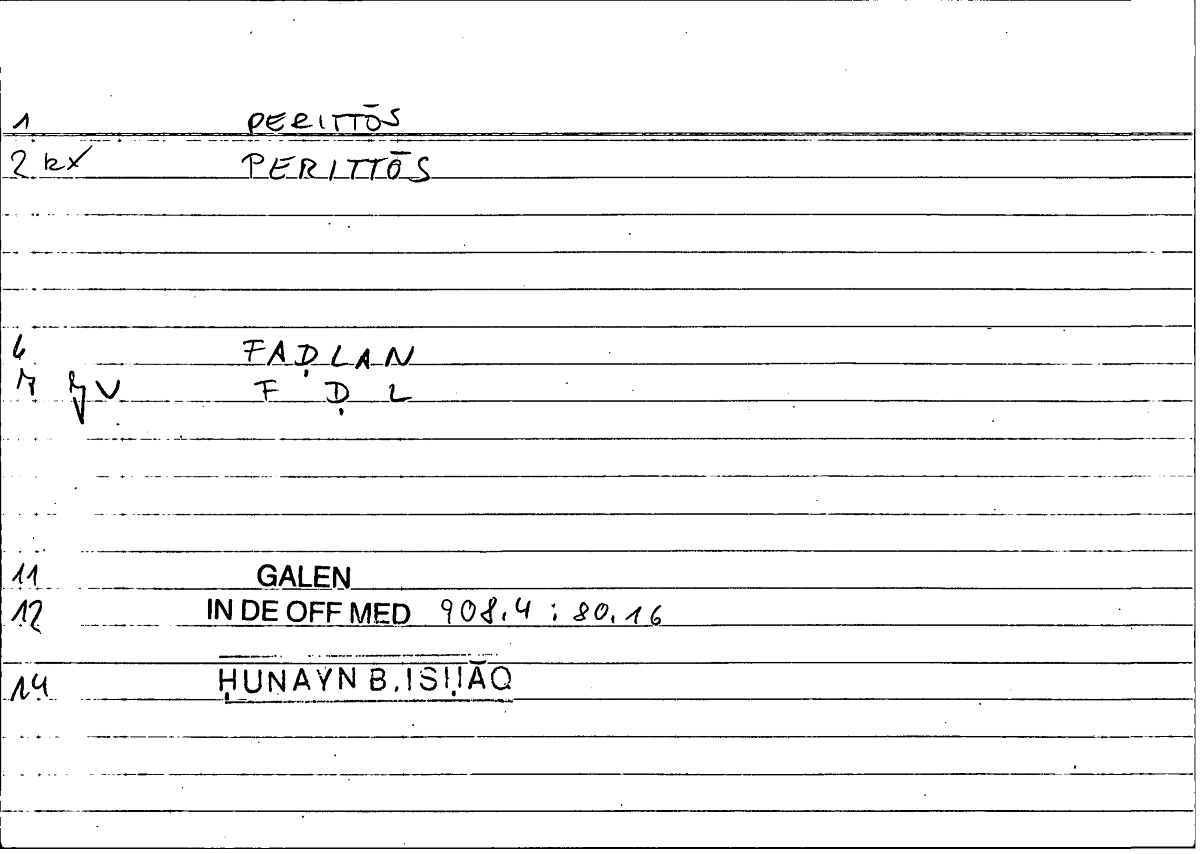 1 PERITTŌS
2 kx PERITTŌS
6 FAḌLAN
7 V F Ḍ L
11 GALEN
12 IN DE OFF MED 908.4 : 80.16
14 ḤUNAYN B. ISḤĀQ